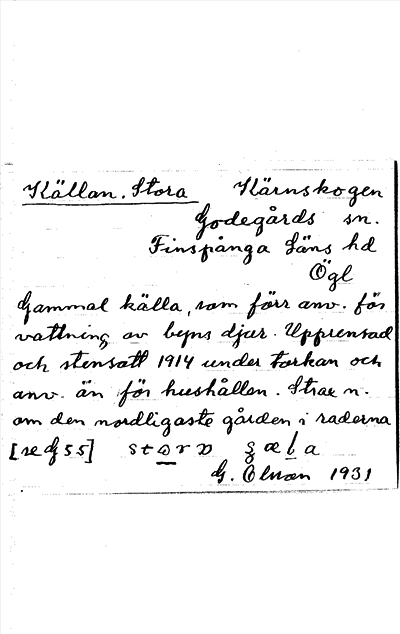 Källan. Stora Kärnskogen
Godegårds sn.
Finspånga Läns hd
Ögl
Gammal källa, som förr anv. för
vattning av byns djur. Upprensad
och stensatt 1914 under torkan och
anv. än för hushållen. Strax n.
om den nordligaste gården i raderna
[se G 55]
G. Olsson 1931